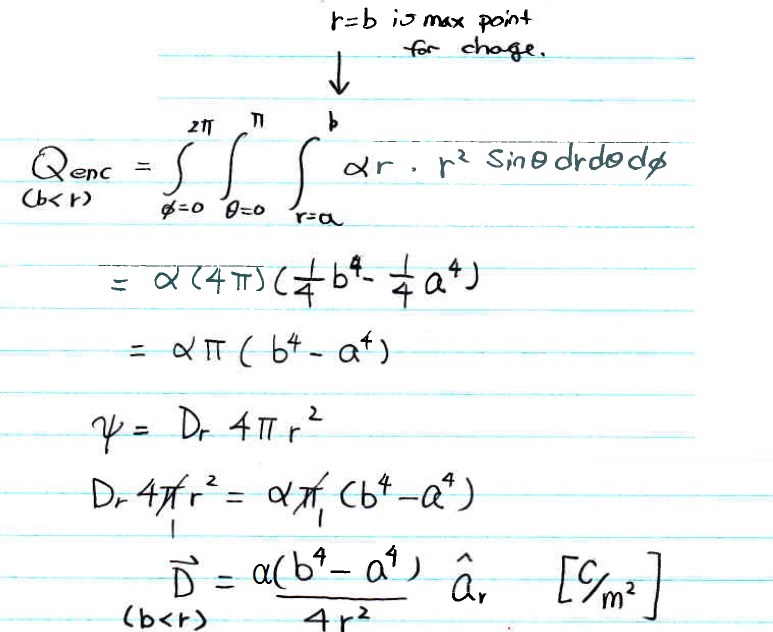 r=b is max point
for charge.
↓
Qenc = ∫_{φ=0}^{2π} ∫_{θ=0}^{π} ∫_{r=a}^{b} αr · r² sinθ dr dθ dφ
(b<r)
= α(4π)(1/4 b⁴ - 1/4 a⁴)
= απ(b⁴ - a⁴)
ψ = Dr 4πr²
Dr 4πr² = απ(b⁴ - a⁴)
1 1
D⃗ = α(b⁴ - a⁴) / 4r² âr [C/m²]
(b<r)